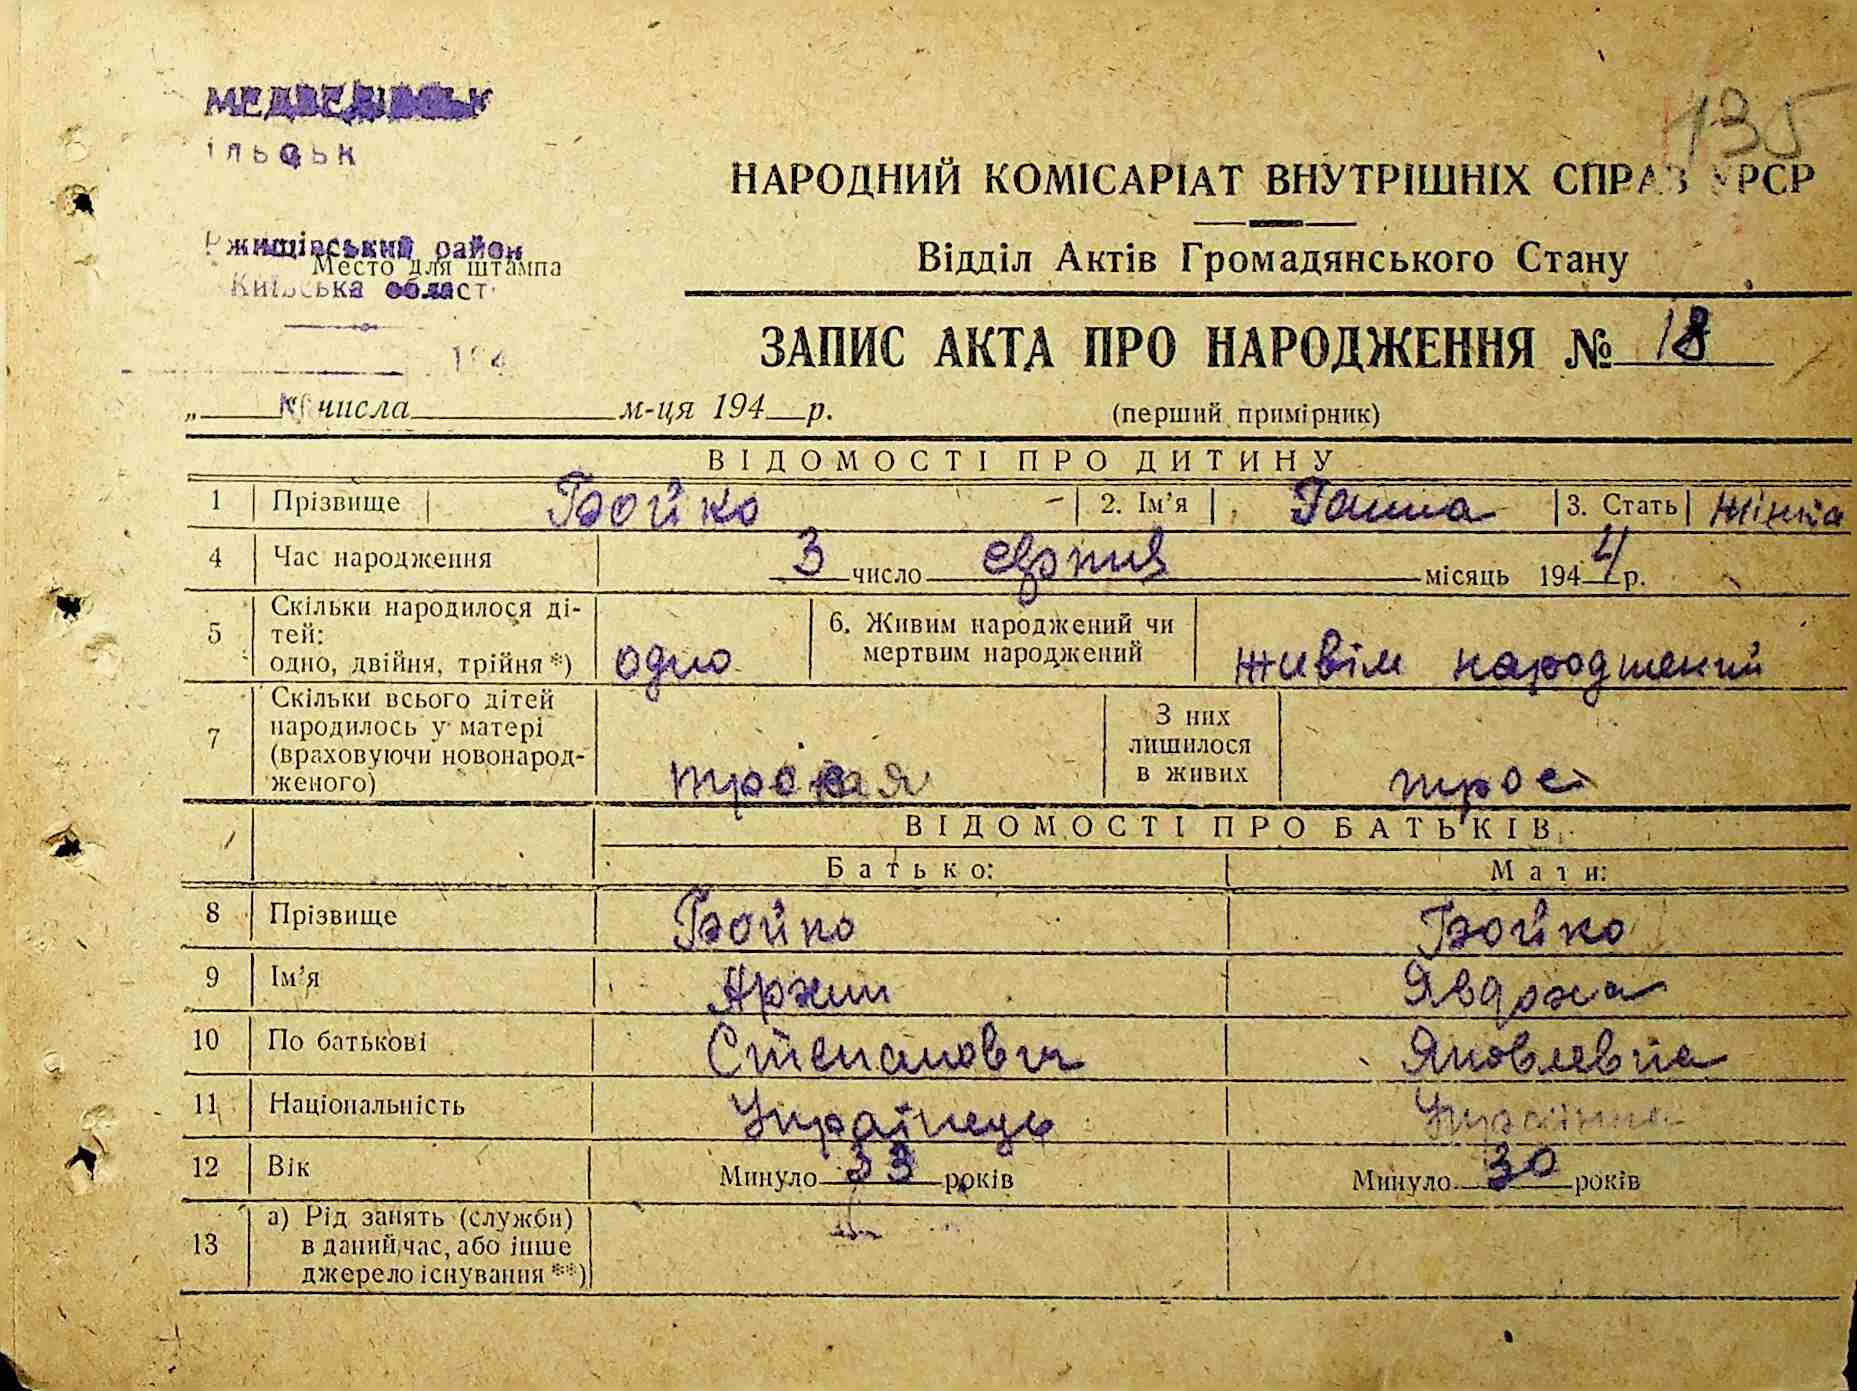 135
Ржищівський район
Место для штампа
Київська област
НАРОДНИЙ КОМІСАРІАТ ВНУТРІШНІХ СПРАВ УРСР
Відділ Актів Громадянського Стану
ЗАПИС АКТА ПРО НАРОДЖЕННЯ № 18
„ числа м-ця 194 р.
(перший примірник)
ВІДОМОСТІ ПРО ДИТИНУ
1 Прізвище Бойко 2. Ім'я Ганна 3. Стать Жінка
4 Час народження 3 число серпня місяць 1944 р.
5 Скільки народилося ді-
тей:
одно, двійня, трійня *) одно
6. Живим народжений чи
мертвим народжений живім народжений
7 Скільки всього дітей
народилось у матері
(враховуючи новонарод-
женого)
З них
лишилося
в живих троє
ВІДОМОСТІ ПРО БАТЬКІВ
Батько: Мати:
8 Прізвище Бойко Бойко
9 Ім'я Архип Явдоха
10 По батькові Степанович Яковлевна
11 Національність Українець Українка
12 Вік Минуло 33 років Минуло 30 років
13 а) Рід занять (служби)
в даний час, або інше
джерело існування **)